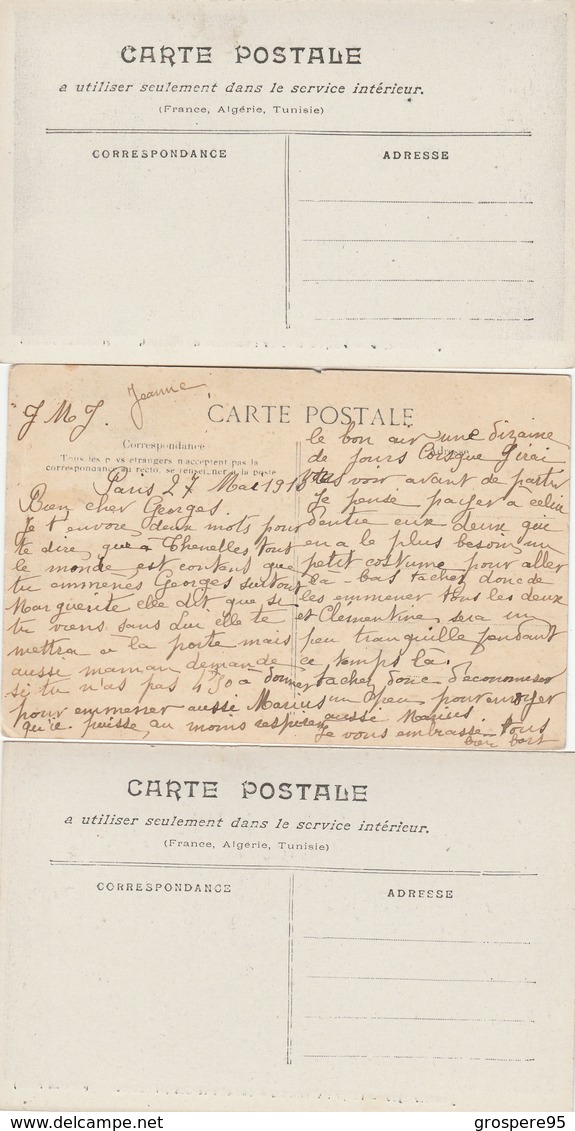 CARTE POSTALE
a utiliser seulement dans le service intérieur.
(France, Algérie, Tunisie)
CORRESPONDANCE
ADRESSE
J M J.
Jeanne
CARTE POSTALE
Correspondance
Tous les pays etrangers n'acceptent pas la
correspondance au recto, se renseigner à la poste
Paris 27 Mai 191
Bien cher Georges.
Je t'envoie deux mots pour
te dire que à Thenelles tout
le monde est content que
tu emmènes Georges surtout
Marguerite elle dit que si
tu viens sans dui elle te
mettra a la porte mais
aussi maman demande
si tu n'as pas 4 50 à donner
pour emmener aussi Marius
qu'il puisse au moins respirer
le bon air une dizaine
de jours Lorsque j'irai
vous voir avant de partir
Je pense payer à celui
d'entre eux deux que
en a le plus besoin un
petit costume pour aller
là-bas tachez donc de
les emmener tous les deux
et Clementine sera un
peu tranquille pendant
ce temps là.
tachez donc d'economiser
un peu pour envoyer
aussi Marius.
Je vous embrasse tous
bien fort
CARTE POSTALE
a utiliser seulement dans le service intérieur.
(France, Algérie, Tunisie)
CORRESPONDANCE
ADRESSE
grospere95